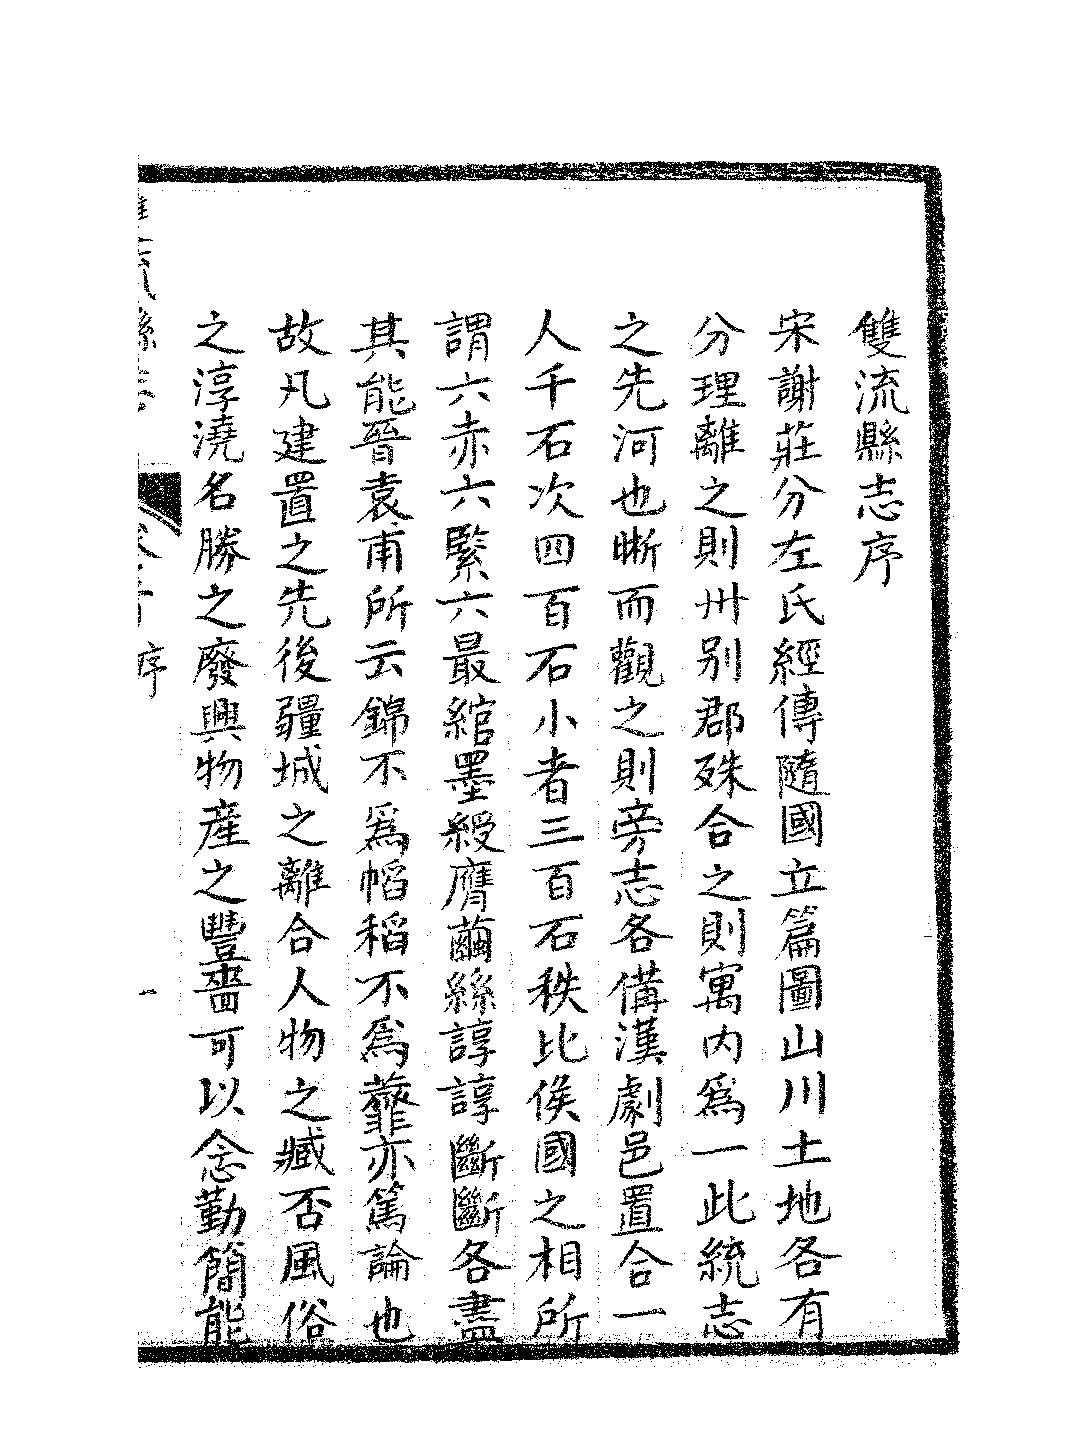 雙流縣志序
宋謝莊分左氏經傳隨國立篇圖山川土地各有
分理離之則州别郡殊合之則寓内爲一此統志
之先河也晰而觀之則旁志各備漢劇邑置合一
人千石次四百石小者三百石秩比侯國之相所
謂六赤六緊六最綰墨綬膺繭絲諄諄斷斷各盡
其能晉袁甫所云錦不爲幍稻不爲虀亦篤論也
故凡建置之先後疆城之離合人物之臧否風俗
之淳澆名勝之廢興物産之豐嗇可以念勤簡能
序
一